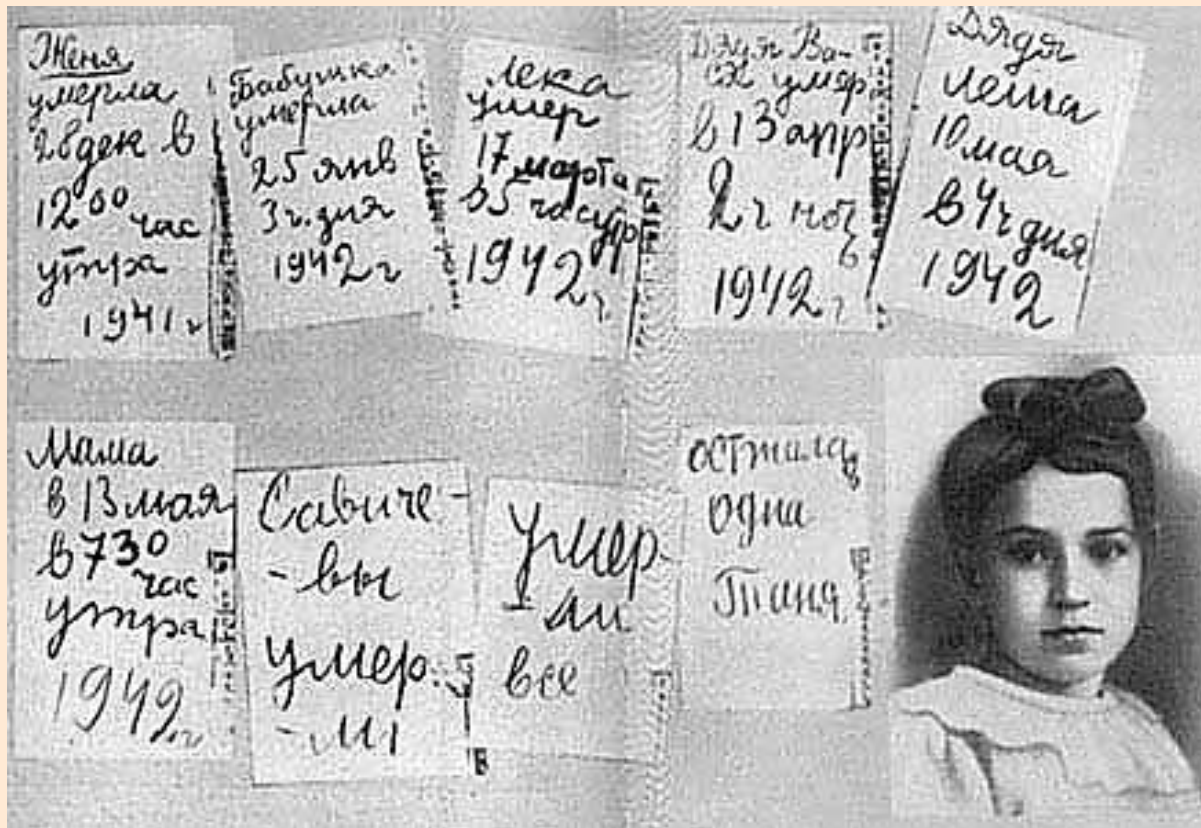 Женя
умерла
28 дек в
12 00 час
утра
1941 г
Бабушка
умерла
25 янв
3 ч. дня
1942 г
Лека
умер
17 марта
в 5 час утр
1942 г.
Дядя Ва-
ся умер
в 13 апр
2 ч ночь
1942 г
Дядя
Леша
10 мая
в 4 ч дня
1942
Мама
в 13 мая
в 7 30
час
утра
1942 г
Савиче-
-вы
умер.
-ли
Умер-
-ли
все
осталась
одна
Таня